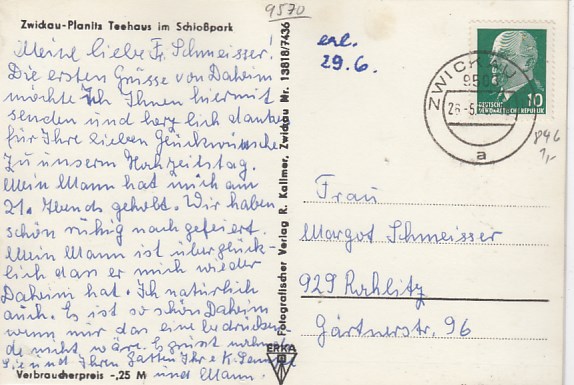 Zwickau-Planitz Teehaus im Schloßpark
Meine liebe Fr. Schmeisser!
Die ersten Grüsse von Daheim
möchte ich Ihnen hiermit
senden und herzlich danken
für Ihre lieben Glückwünsche
zu unserm Hochzeitstag.
Mein Mann hat mich am
21. Abends geholt. Wir haben
schön ruhig nachgefeiert.
Mein Mann ist überglück-
lich das er mich wieder
Daheim hat. Ich natürlich
auch. Es ist so schön Daheim
wenn nur das eine bedrücken
de nicht wäre. Es grüsst
Sie und Ihren Gatten Ihre K.
und Mann.
Verbraucherpreis -,25 M
9570
Fotografischer Verlag R. Kallmer, Zwickau Nr. 13818/7436
ERKA
erl.
29.6.
ZWICKAU
95
a
DEUTSCHE
DEMOKRATISCHE REPUBLIK
10
1,-
Frau
Margot Schmeisser
929 Rochlitz
Gärtnerstr. 96